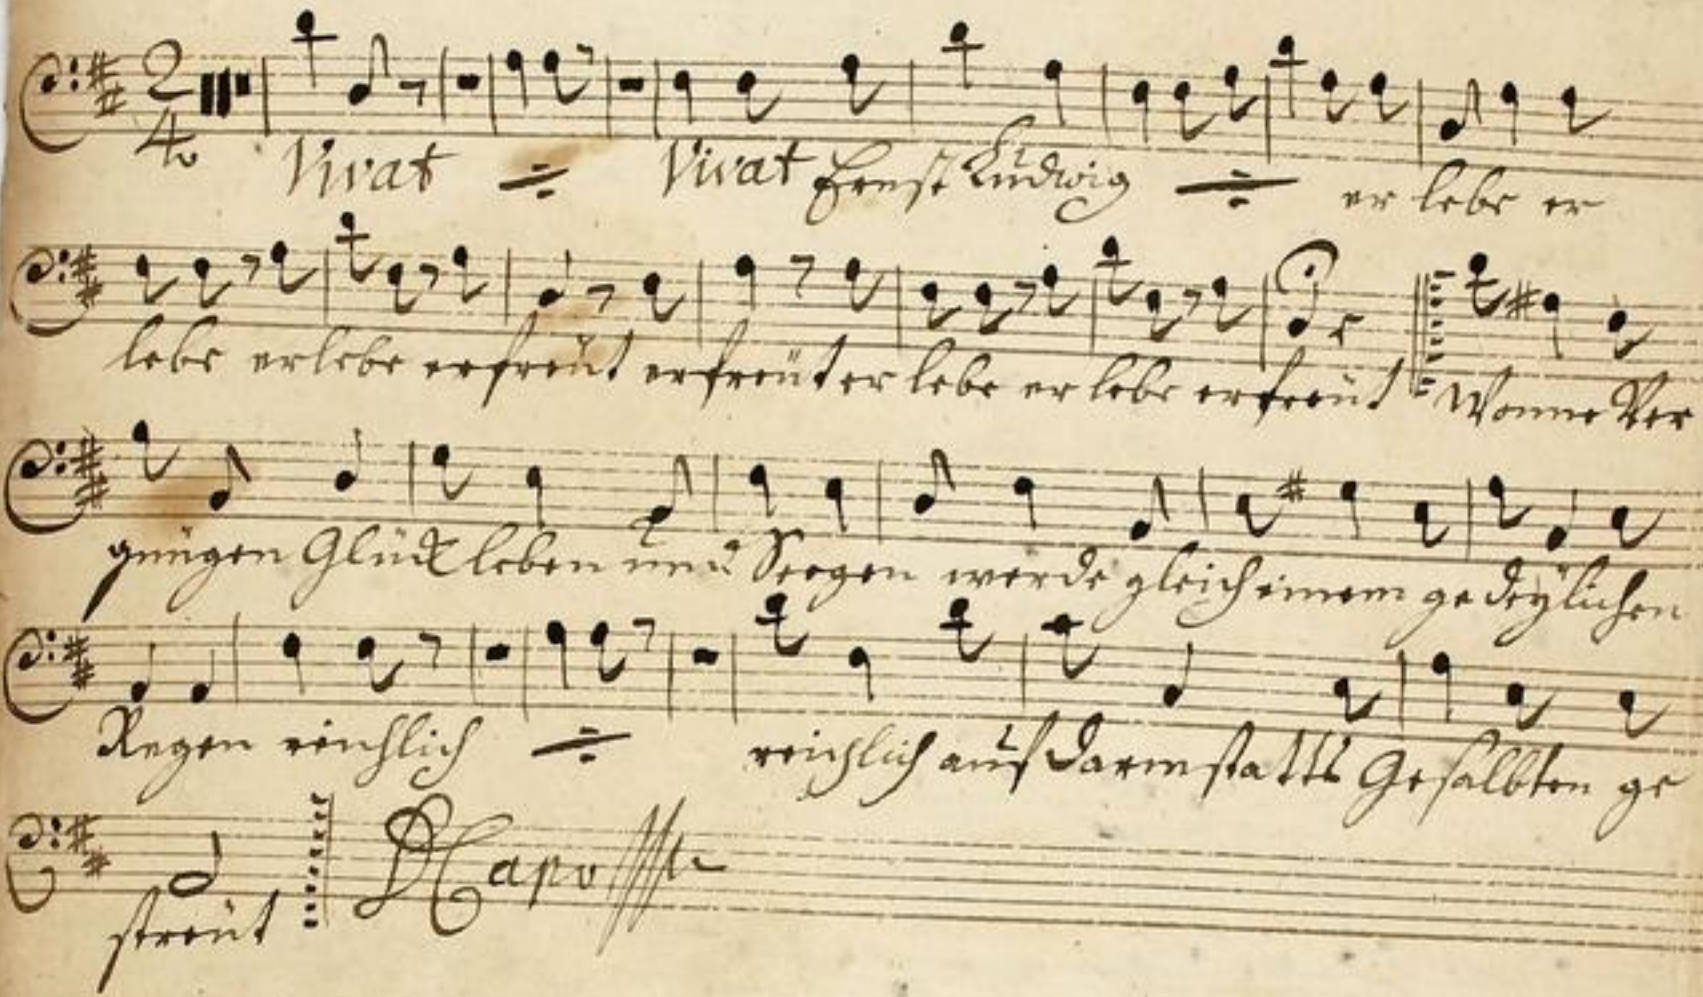 2
4
Vivat ÷ Vivat Ernst Ludwig ÷ er lebe er
lebe er lebe erfreut erfreüt er lebe er lebe erfreüt Wonne Ver
gnügen Glück leben und Seegen werde gleich einem gedeylichen
Regen reichlich ÷ reichlich auf Darmstatts Gesalbten ge
streüt D Capo